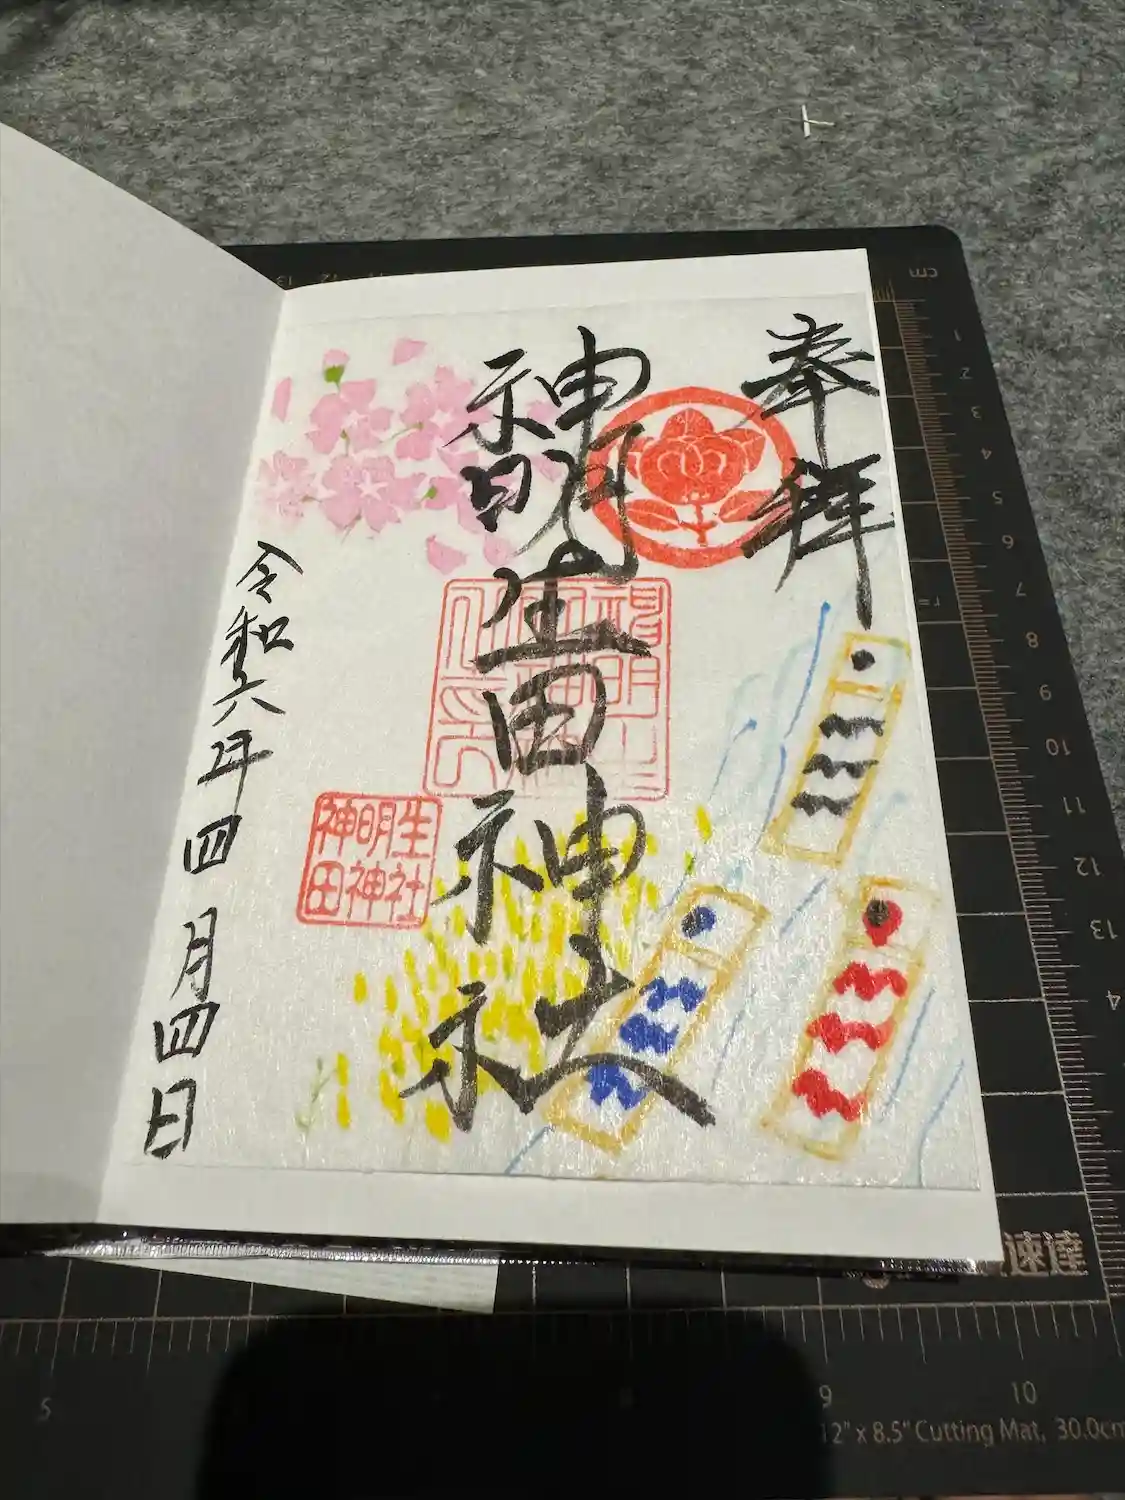 奉拝
神明生田神社
令和六年四月四日
生社
明神
神田
cm
1
2
3
4
5
6
7
8
9
10
11
12
13
4
速達
5
9
10
12" x 8.5" Cutting Mat, 30.0cm